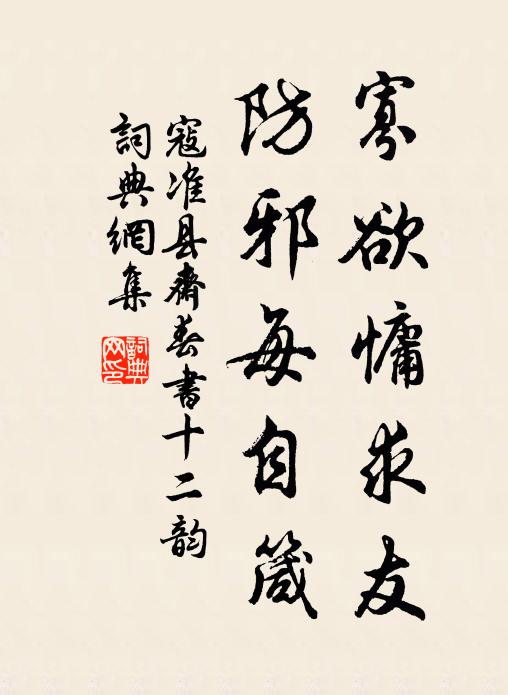 寡欲慵求友
防邪每自箴
寇准县斋春书十二韵
詞典網集
詞典
网印